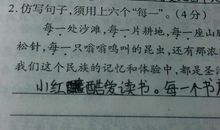 2.仿写句子,须用上六个“每一”。(4分)
每一处沙滩,每一片耕地,每一座山脉
松针,每一只嗡嗡鸣叫的昆虫,还有那浓
我们这个民族的记忆和体验中,都是圣洁
小红酷爱读书。每一个书